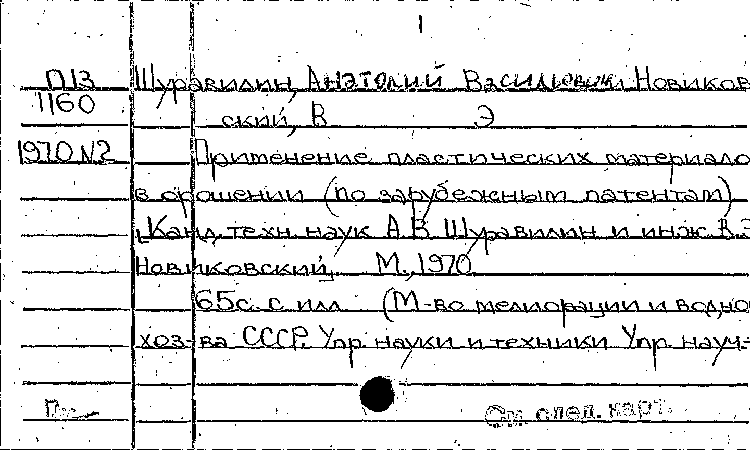 1
П13 Шуравилин, Анатолий Васильевич и Новиков
1160 ский, В Э
1970 №2 Применение пластических материало
в орошении (по зарубежным патентам)
[Канд. техн. наук А.В. Шуравилин и инж. В.Э.
Новиковский]. М., 1970
65с. с илл. (М-во мелиорации и водно
хоз-ва СССР. Упр. науки и техники Упр. науч-
См. след. карт.